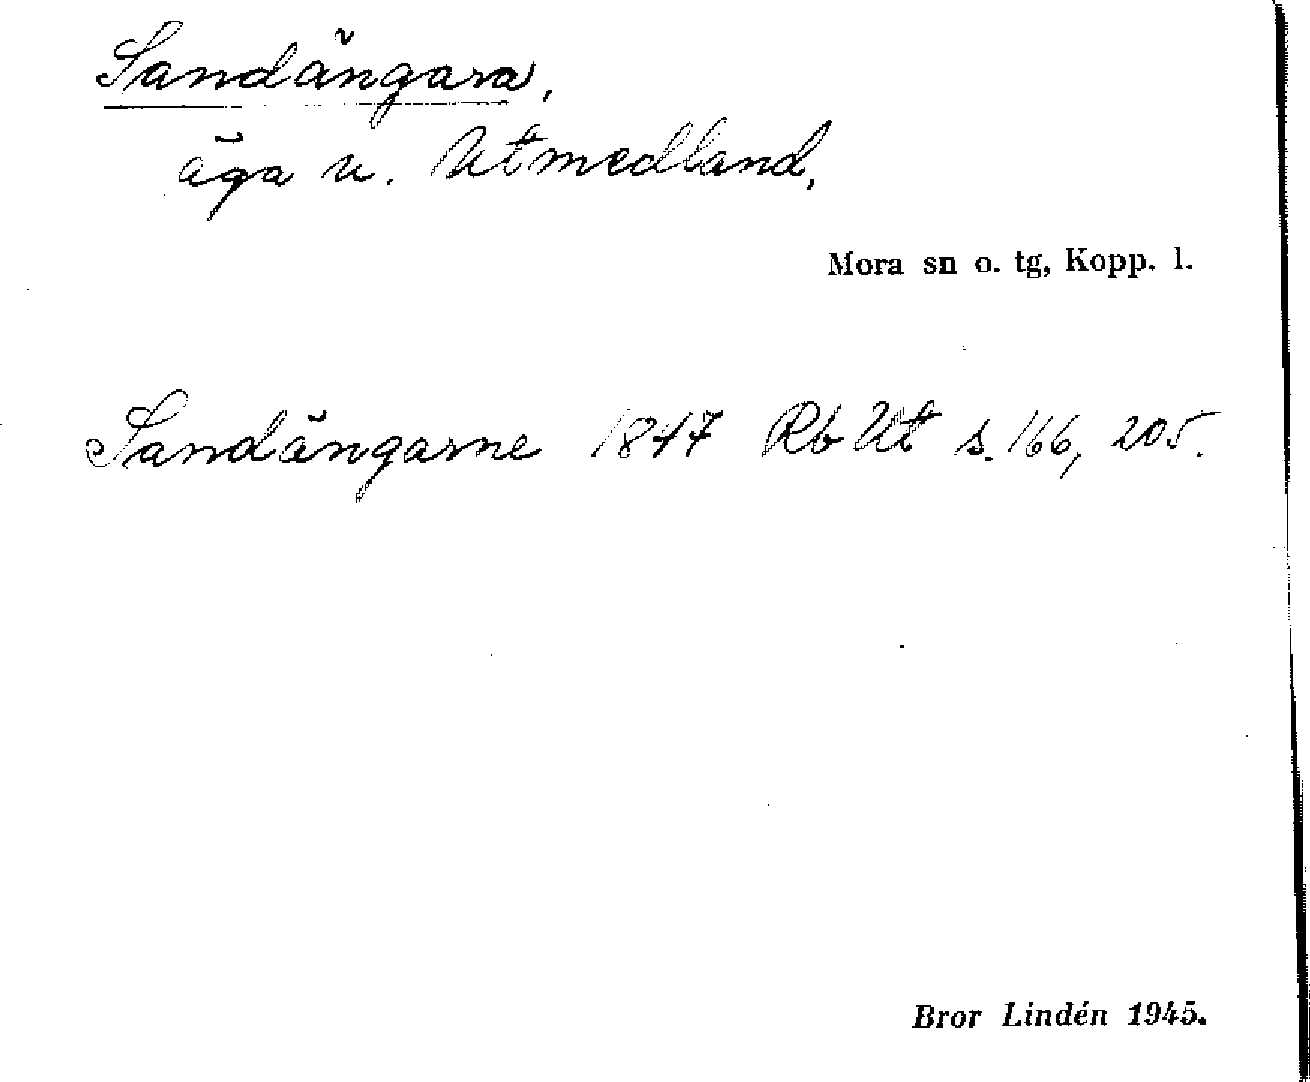 Sandängara,
äga u. Utmedland,
Mora sn o. tg, Kopp. l.
Sandängarne 1847 Rb Ut s. 166, 205.
Bror Lindén 1945.